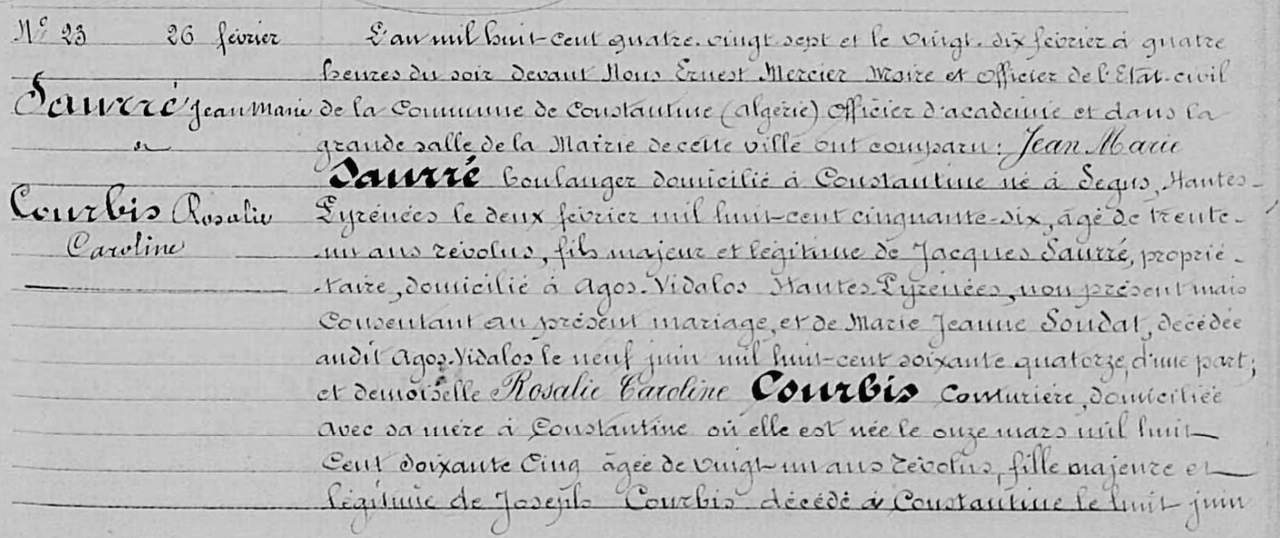 N° 23 26 février
Saurré Jean Marie
&
Courbis Rosalie
Caroline
L'an mil huit-cent quatre-vingt-sept et le vingt-six février à quatre
heures du soir devant Nous Ernest Mercier Maire et officier de l'Etat-civil
de la Commune de Constantine (Algérie) officier d'académie et dans la
grande salle de la Mairie de cette ville ont comparu: Jean Marie
Saurré boulanger domicilié à Constantine né à Segus, Hautes-
Pyrénées le deux février mil huit-cent cinquante-six, âgé de trente-
-un ans révolus, fils majeur et légitime de Jacques Saurré, proprié-
-taire, domicilié à Agos-Vidalos Hautes-Pyrénées, non présent mais
Consentant au présent mariage, et de Marie Jeanne Soudat, décédée
audit Agos-Vidalos le neuf juin mil huit-cent soixante quatorze, d'une part;
et demoiselle Rosalie Caroline Courbis Couturière, domiciliée
avec sa mère à Constantine où elle est née le onze mars mil huit
Cent soixante Cinq âgée de vingt-un ans révolus, fille majeure et
légitime de Joseph Courbis décédé à Constantine le huit juin